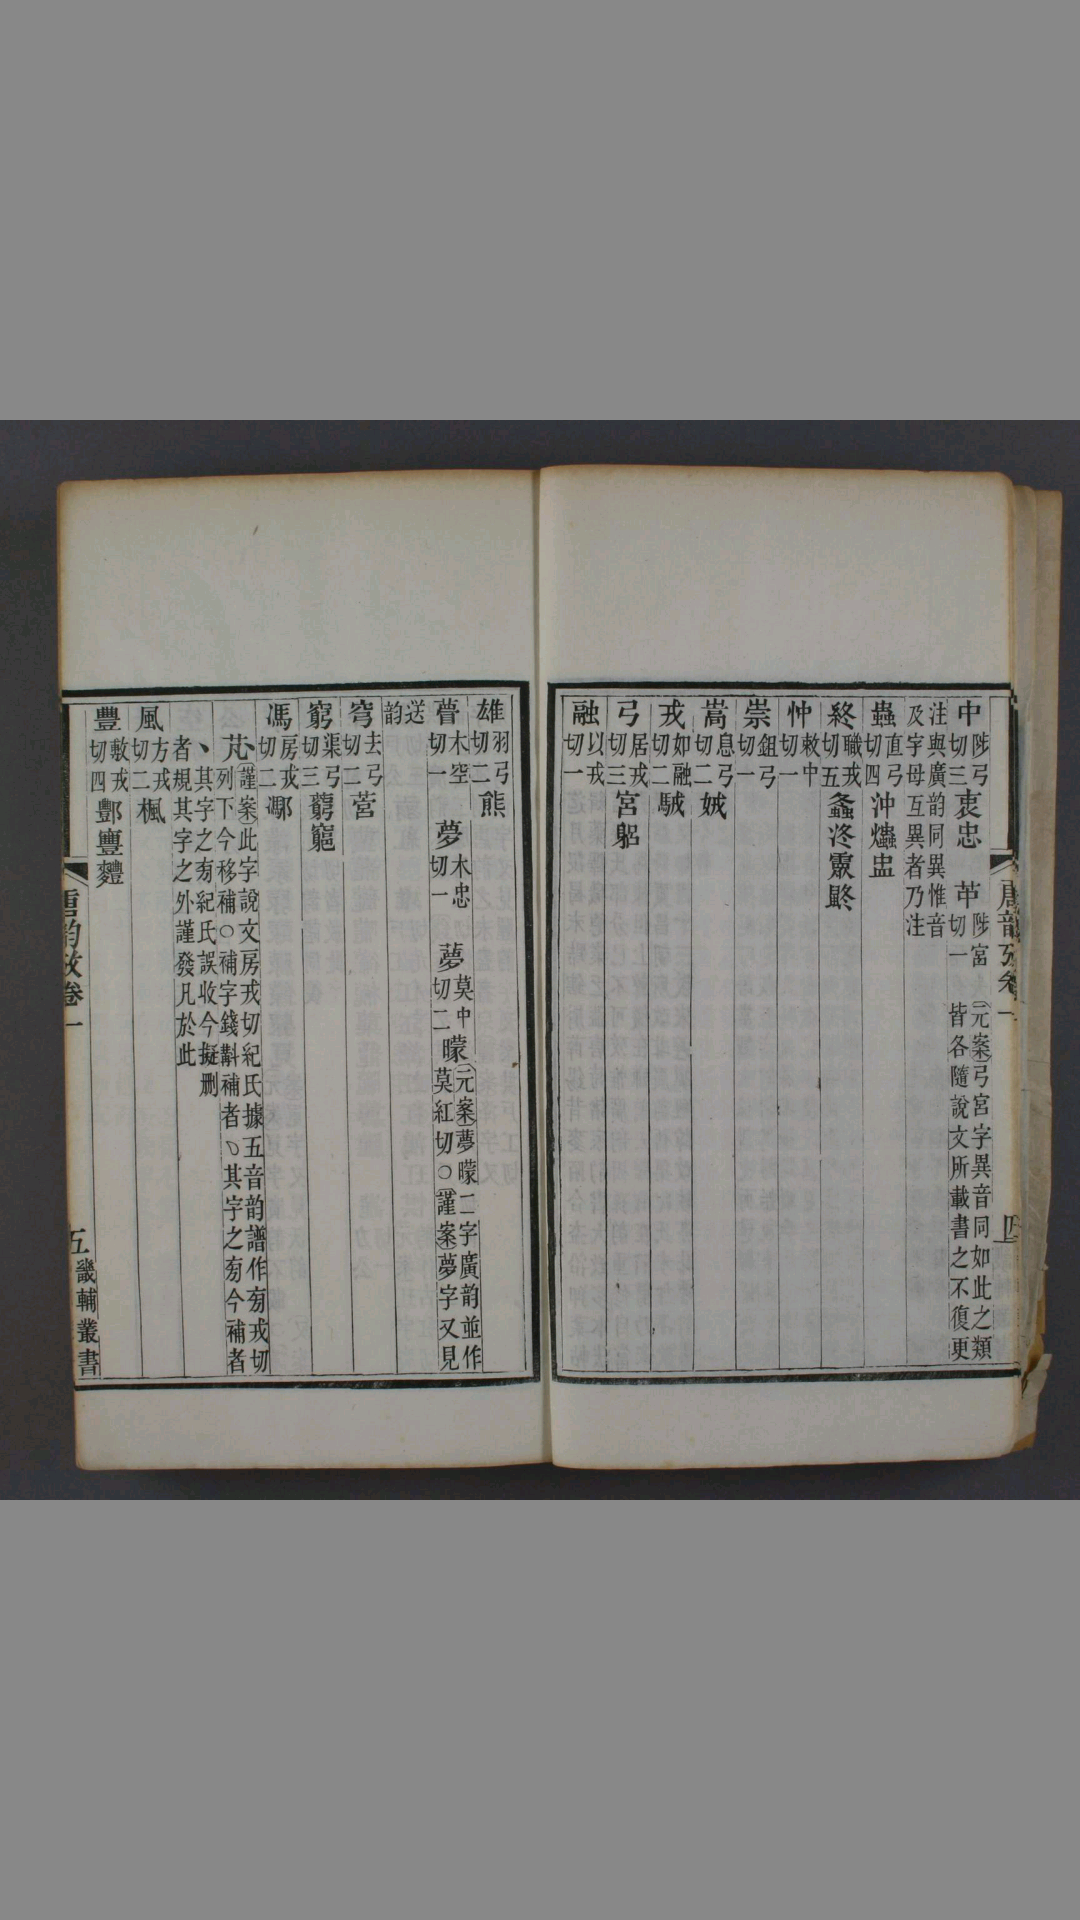 中陟弓切三衷忠 𦬕陟宮切一元案弓宮字異音同如此之類皆各隨說文所載書之不復更
注與廣韵同異惟音及字母互異者乃注
蟲直弓切四沖爞盅
終職戎切五螽泈霥鼨
忡敕中切一
崇鉏弓切一
嵩息弓切二娀
戎如融切二駥
弓居戎切三宮躳
融以戎切一
唐韵攷卷一
四
雄羽弓切二熊
瞢木空切一 夢木忠切一 夢莫中切二矇莫紅切○元案夢矇二字廣韵並作謹案夢字又見
送韵
穹去弓切二营
竆渠弓切三藭竆
馮房戎切二渢
芃謹案此字說文房戎切紀氏據五音韵譜作㓚戎切列下今移補○補字錢斠補者﹅其字之㓚今補者
﹅其字之㓚紀氏誤收今擬刪者規其字之外謹發凡於此
風方戎切二楓
豐敷戎切四酆寷麷
唐韵攷卷一
五
畿輔叢書